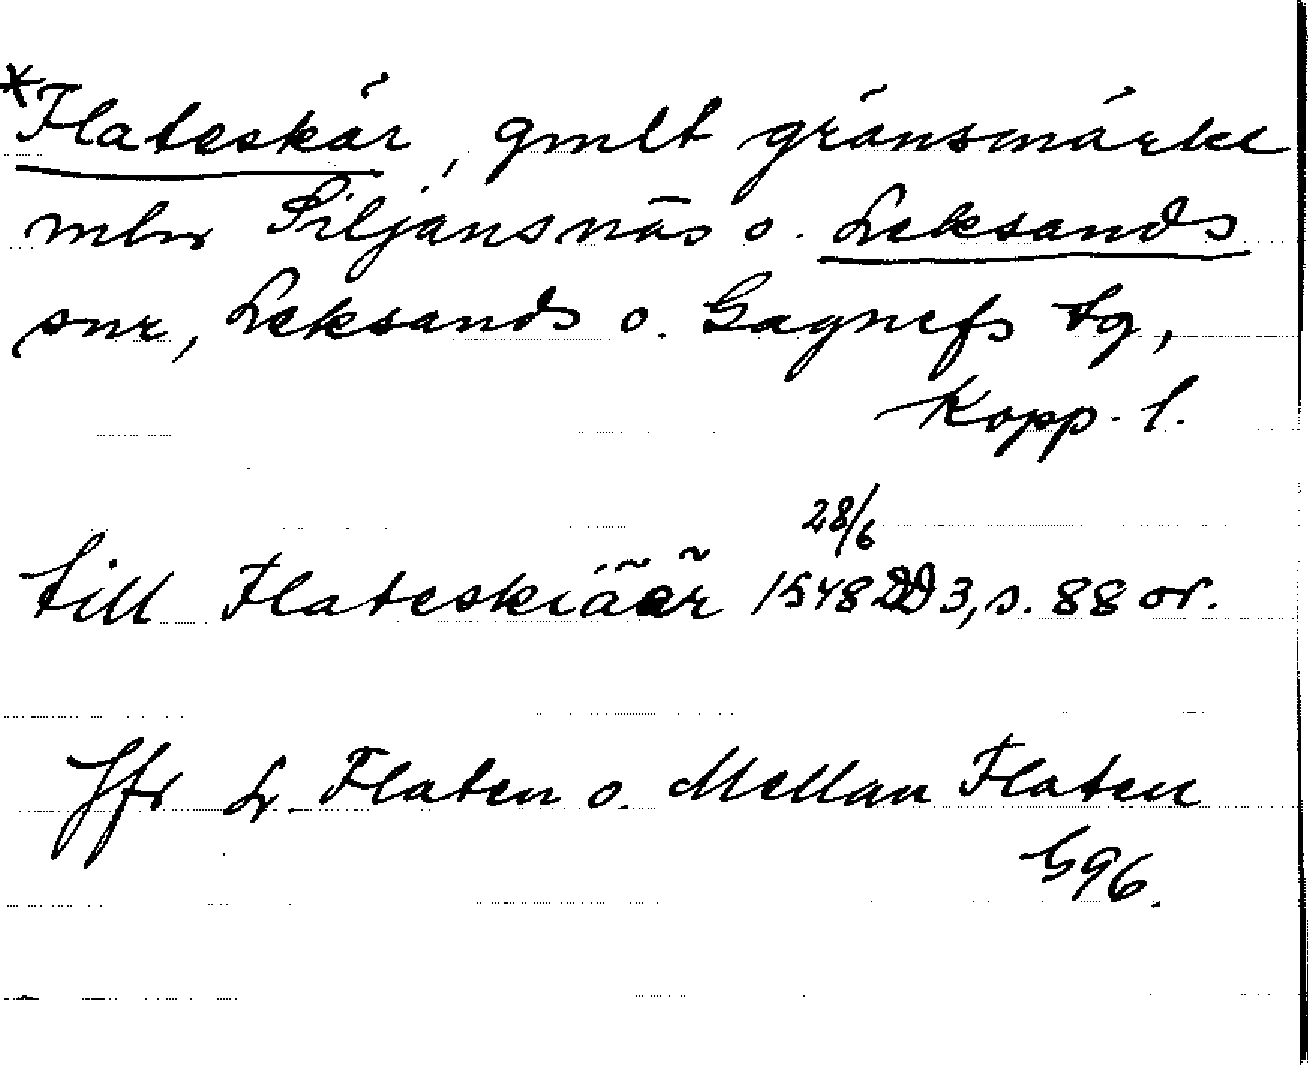 *Flateskär, gmlt gränsmärke
mln Siljansnäs o. Leksands
snr, Leksands o. Gagnefs tg,
Kopp. l.
till Flateskiäär 28/6 1548 DD 3, s. 88 or.
Jfr L. Flaten o. Mellan Flaten
G96.